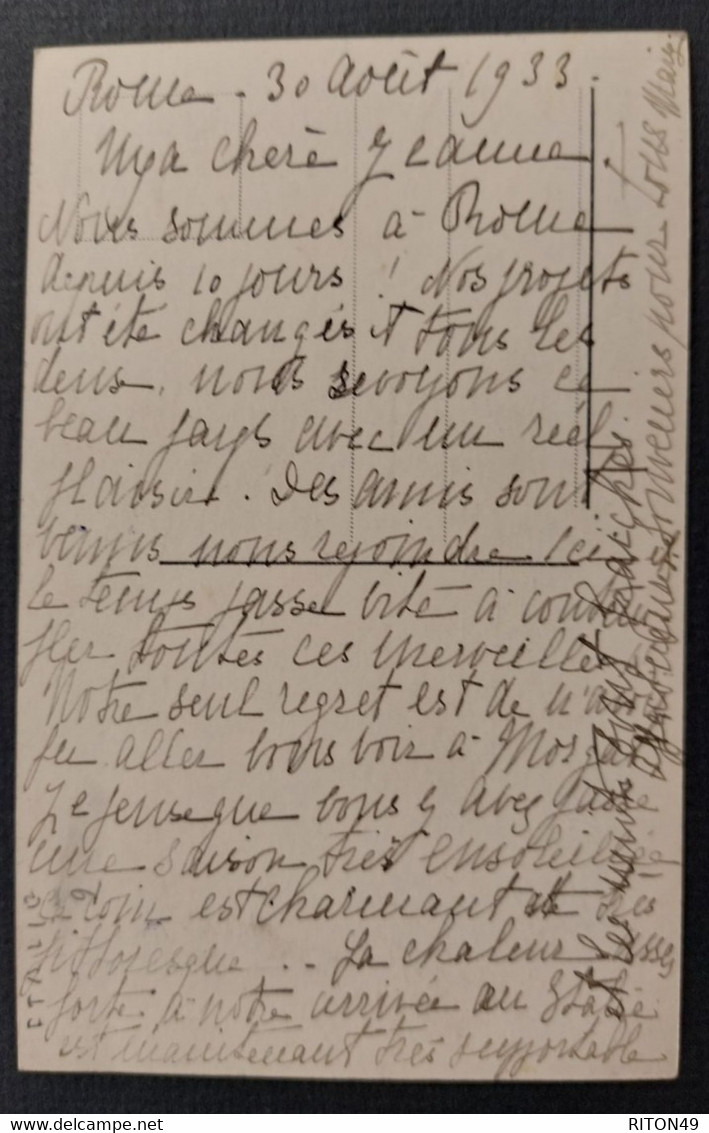 Rome - 30 Août 1933.
Ma chère Jeanne.
Nous sommes à Rome
depuis 10 jours ! Nos projets
ont été changés et tous les
deux, nous revoyons ce
beau pays avec un réel
plaisir. Des amis sont
venus nous rejoindre ici
le temps passe vite à contem
pler toutes ces merveilles
Notre seul regret est de n'avoir
pu aller vous voir à
Je pense que vous y avez passé
une saison très ensoleillée
ce coin est charmant et très
pittoresque .. La chaleur assez
forte à notre arrivée en Italie
est maintenant très supportable
et les nuits sont fraîches.
souvenirs pour tous
delcampe.net
RITON49